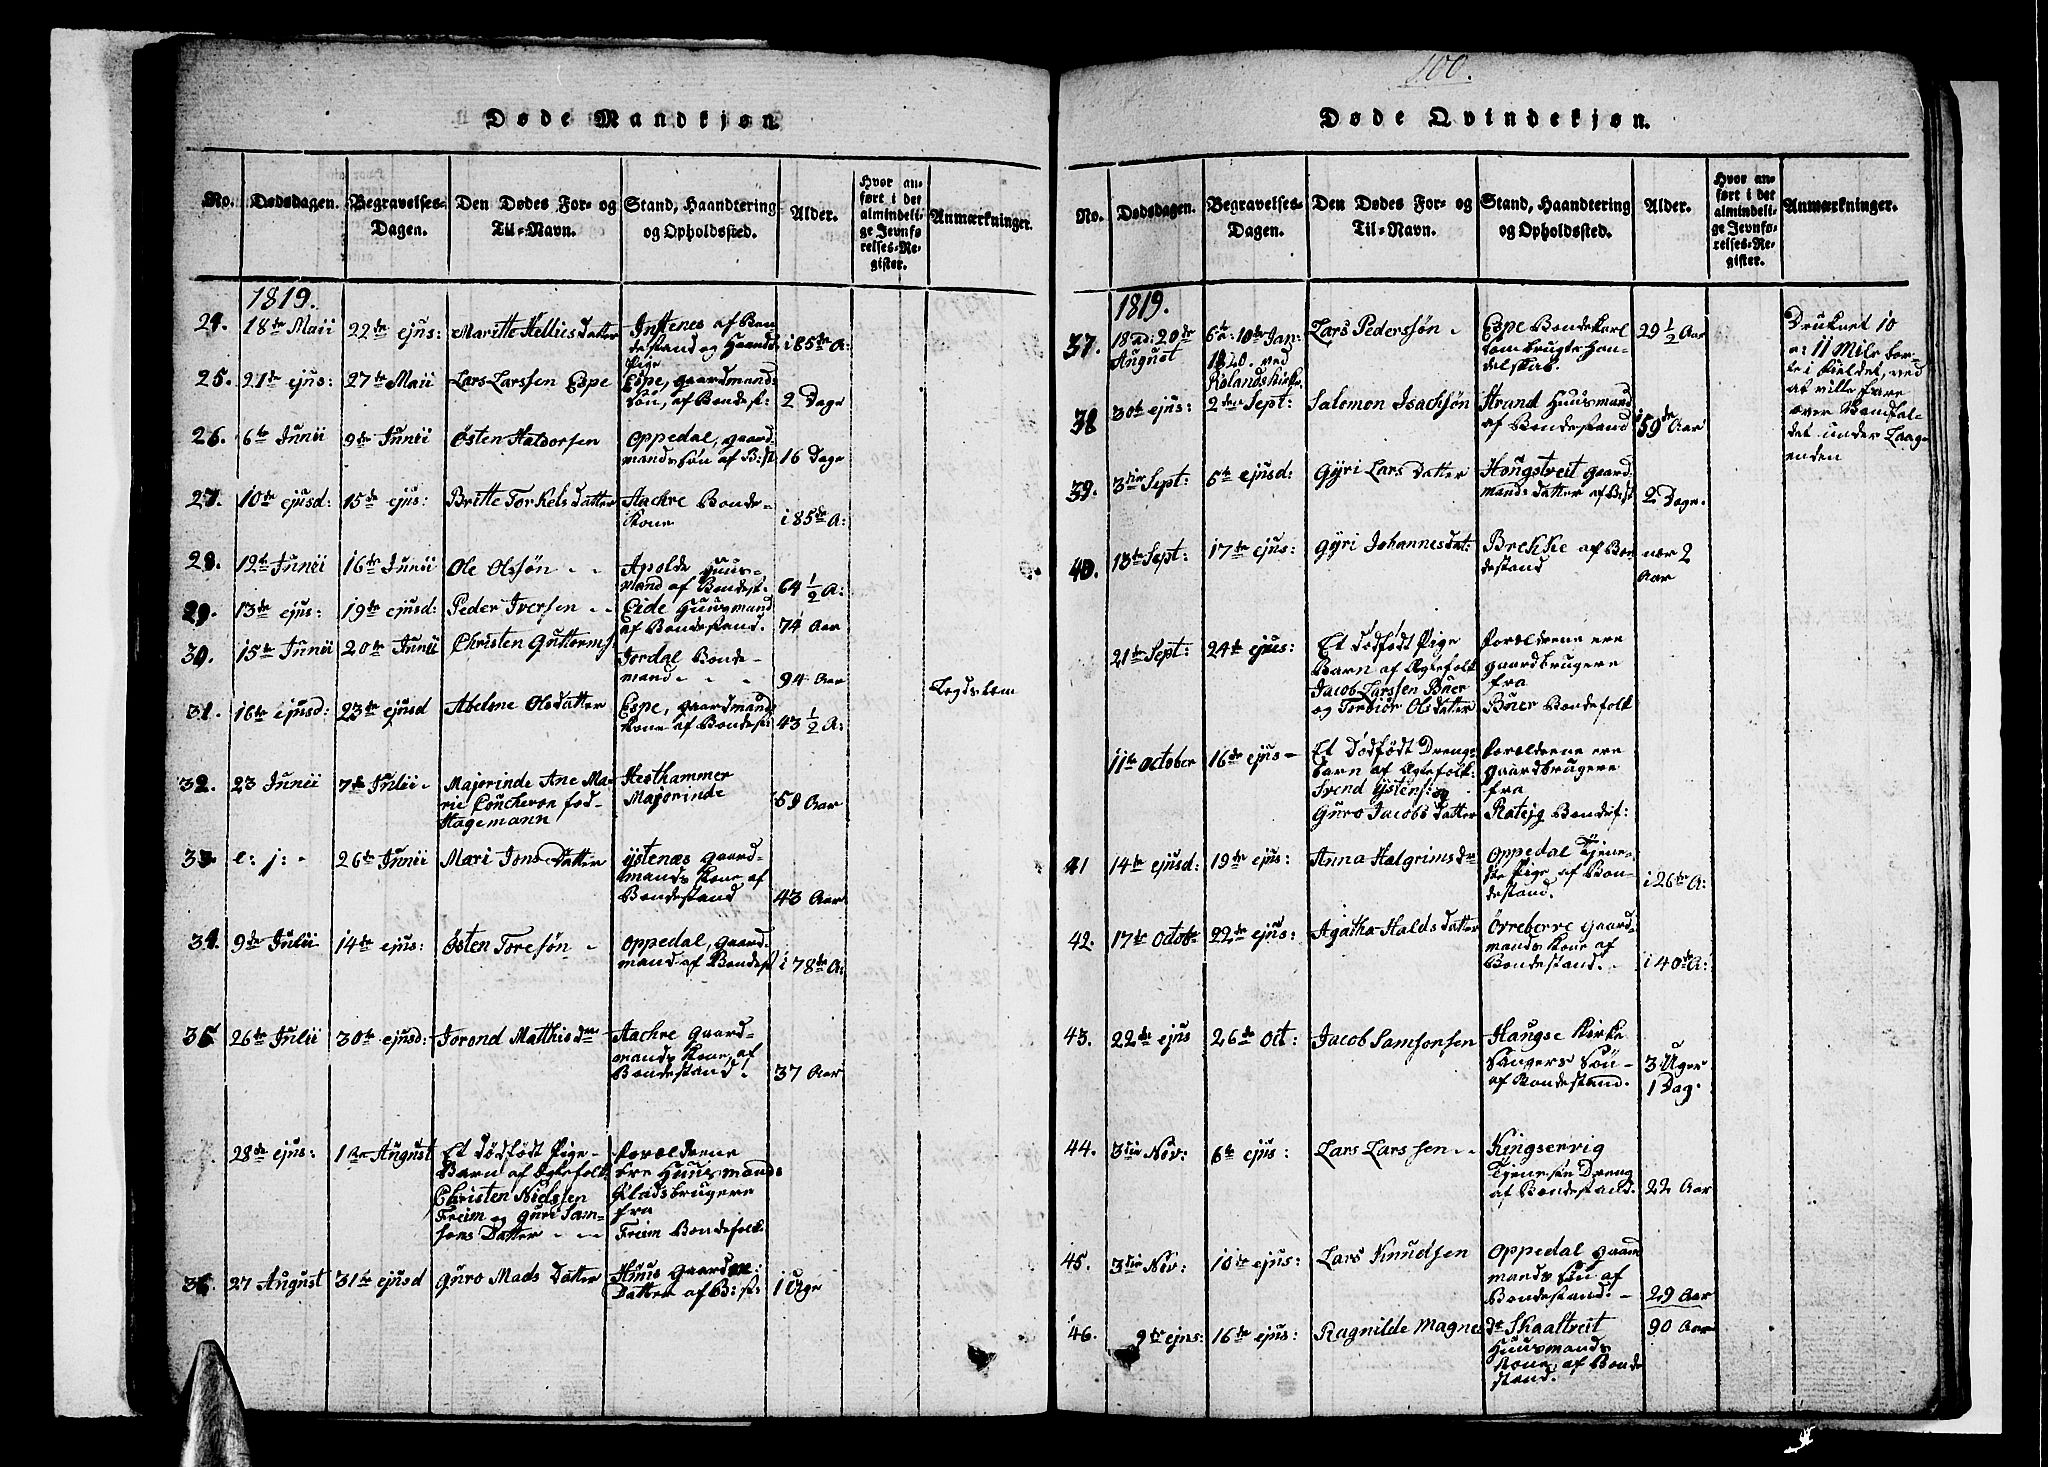 100.
Døde Mandkjøn.
No.
Dødsdagen.
Begravelses-
Dagen.
Den Dødes For- og
Til-Navn.
Stand, Haandtering
og Opholdssted.
Alder.
Hvor an-
ført i det
almindeli-
ge Jevnfø-
relses-Re-
gister.
Anmærkninger.
1819.
24. 18de Maii 22de ejus: Maritte Hellies datter
af Bon-
destand og
Pige
i 85de A:
25. 21de ejus: 27de Maii Lars Larssen Espe
Espe, gaardmands
søn, af Bondest:
2 Dage
26. 6te Junii 9de Junii Østen Haldorsen
Oppedal, gaard-
mands søn af B:st
16 Dage
27. 10de ejusd: 15de ejus: Britte Torkels Datter
Aachre Bonde-
Kone
i 85de A:
28. 12te Junii 16de Junii Ole Olssøn
Apolde Huus-
Mand af Bondest.
64 1/2 A:
29. 13de ejus: 19de ejusd: Peder Iversen
Eide Huusmand
af Bondestand.
74 Aar
30. 15te Junii 20de Junii Christen Guttorms
Jordal Bonde-
mand
94 Aar
Legdslem
31. 16te ejusd: 23de ejusd Abelone Olsdatter
Espe, gaardmands
Kone af Bondest:
43 1/2 A:
32. 23 Junii 7de Julii Majorinde Ane Ma-
rie Coucheron fød-
Hagemann
Hesthammer
Majorinde
59 Aar
33. e: j: 26de Junii Mari Jons Datter
Ystenæs gaard-
mands Kone af
Bondestand
43 Aar
34. 9de Julii 14de ejus: Østen Toresøn
Oppedal, gaard-
mand af Bondest
i 78de A:
35 26de Julii 30te ejusd: Torond Matthis
Aachre gaard-
mands Kone, af
Bondestand.
37 Aar
28de ejus: 1ste August Et dødfødt Pige-
Barn af Ægtefolk
Christen Nielssen
Freim og Guri Sam-
sons Datter
Forældrene
ere Huusmands
Pladsbrugere
fra
Freim Bondefolk
36. 27 August 31te ejusd Guro Mads Datter
Huus gaardm:
Datter af B:st:
1 Uge
Døde Qvindekjøn.
No.
Dødsdagen.
Begravelses-
Dagen.
Den Dødes For- og
Til-Navn.
Stand, Haandtering
og Opholdssted.
Alder.
Hvor an-
ført i det
almindeli-
ge Jevnfø-
relses-Re-
gister.
Anmærkninger.
1819.
37. 18 20de
August
10de Jan:
1820. ved
Rølands Kirke
Lars Pederssøn
Espe Bondekarl
som brugte han-
delskab.
29 1/2 Aar
Druknet 10
a: 11 Mile bor-
te i Fieldet, ved
at ville fare
over
det under
enden
38 30te ejus: 2den Sept: Salomon Isachsøn
Strand Huusmand
af Bondestand
i 59de Aar
39. 3die Sept: 6te ejusd: Gyri Lars Datter
Hougstveit gaard
mands datter af Best
2 Dage.
40. 13de Sept: 17de ejus: Gyri Johannesdat:
Brekke af Bon
destand
nær 2
Aar
21de Sept: 24de ejus: Et dødfødt Pige
Barn af Ægtefolk
Jacob Larssen Buer
og Torbiør Olsdatter
Forældrene ere
gaardbrugere
fra
Buer Bondefolk
11te October 16de ejus Et Dødfødt Drenge
barn af Ægtefolk:
Svend Ystens: og
Guro Jacobs Datter
Forældrene ere
gaardbrugere
fra
Bondef:
41 14de ejusd: 19de ejus: Anna Halgrims
Oppedal Tjene-
ste Pige af Bon-
destand.
i 26de A:
42. 17de Octobr 22de ejus: Agatha Halds datter
Ørreberre gaard-
mands Kone af
Bondestand.
i 40de A:
43. 22de ejus 26de Oct: Jacob Samsonsen
Haugse Kirke
Sangers Søn
af Bondestand.
3 Uger
1 Dag.
44. 3die Nov: 6te ejus: Lars Larssen
Kingservig
Tjeneste Dreng
af Bondestand.
22 Aar
45. 3die Nov: 10de ejus: Lars Knudsen
Oppedal gaard
mands Søn af
Bondestand.
29 Aar
46. 9de ejus: 16de ejus: Ragnilde Magnes
dr Skaaltveit
Huusmands
Kone, af Bonde
stand.
90 Aar